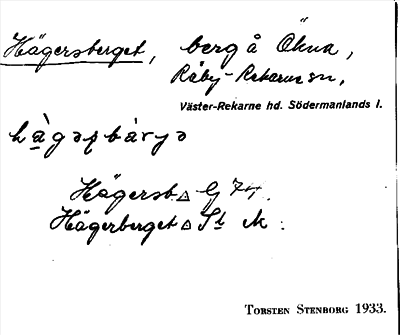 Hägersberget, berg å Ökna,
Råby-Rekarne sn,
Väster-Rekarne hd. Södermanlands l.
Hägersb. △ G 74.
Hägerberget △ St M:
TORSTEN STENBORG 1933.